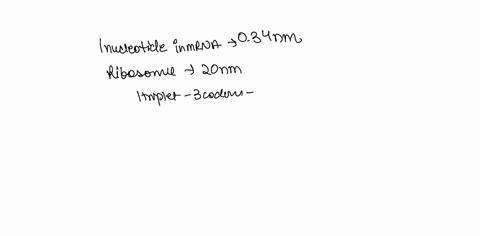 1 nucleotide in mRNA → 0.34nm
Ribosome → 20nm
1 triplet - 3 codons -